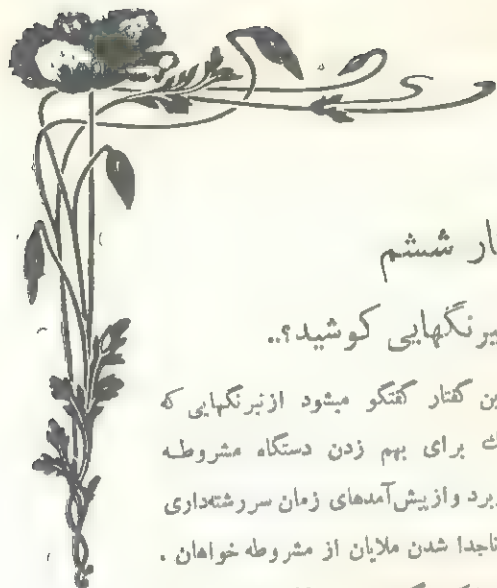 ار ششم
یرنگهایی کوشید؟..
ین گفتار گفتگو میشود ازنیرنگهایی که
ك برای بهم زدن دستگاه مشروطه
برد و از پیش‌آمدهای زمان سررشته‌داری
تاجدا شدن ملایان از مشروطه خواهان .